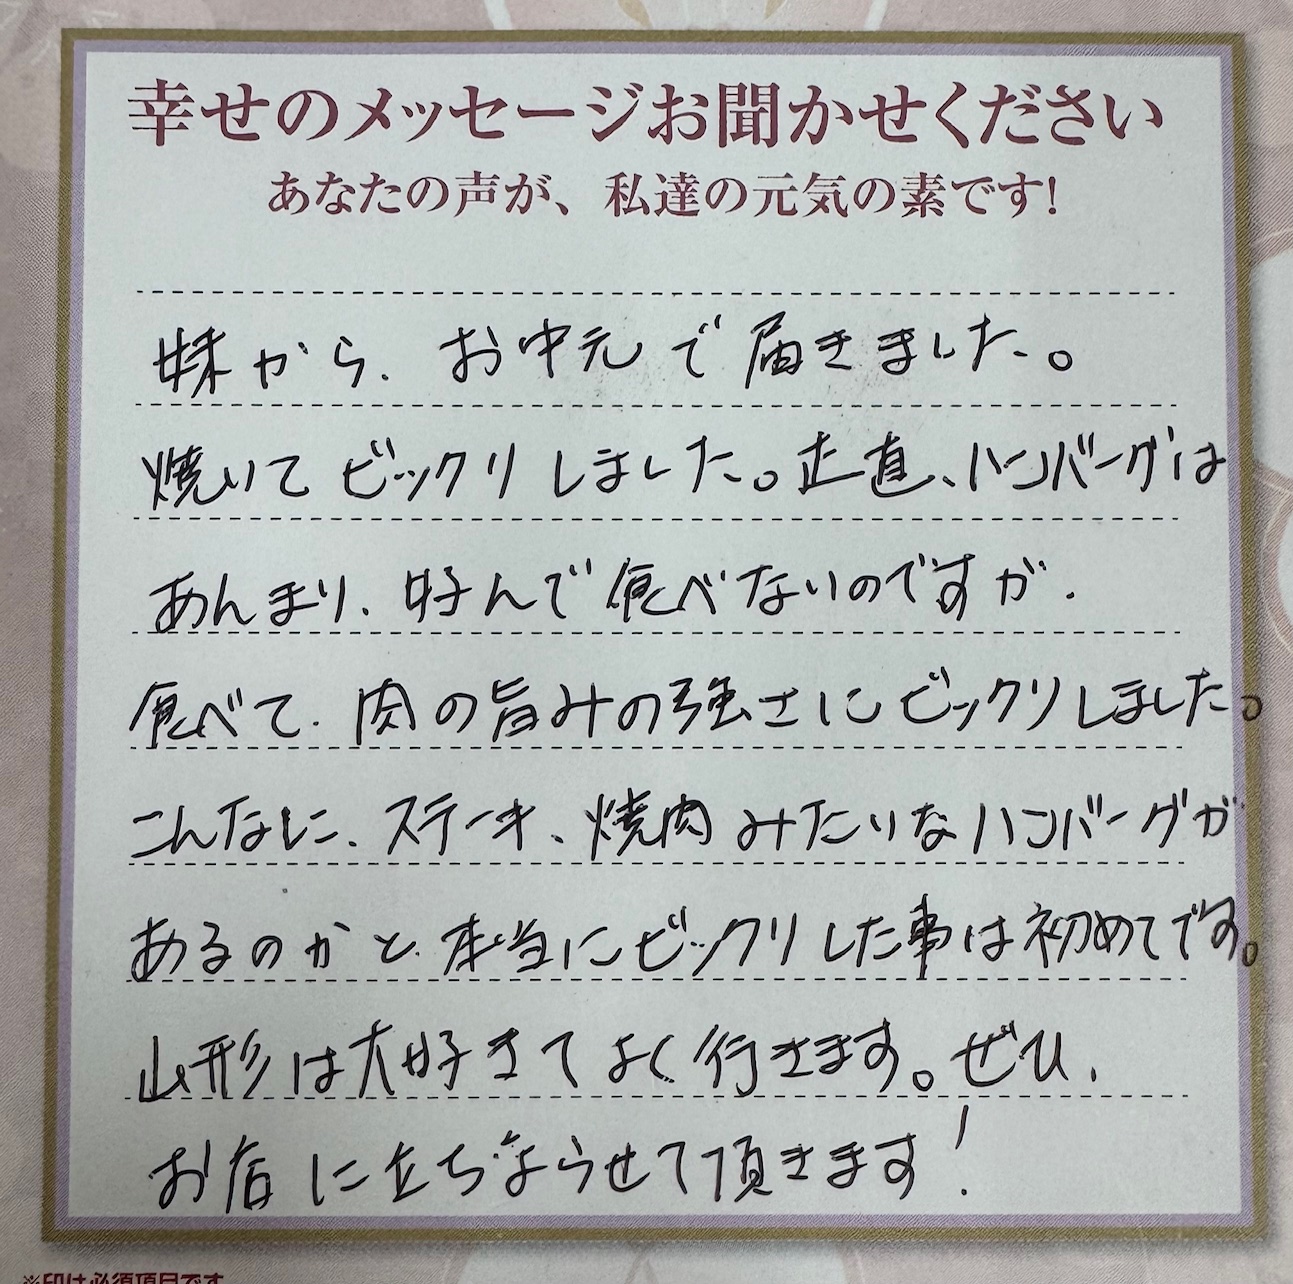 幸せのメッセージお聞かせください
あなたの声が、私達の元気の素です!
妹から、お中元で届きました。
焼いてビックリしました。正直、ハンバーグは
あんまり、好んで食べないのですが、
食べて、肉の旨みの強さにビックリしました。
こんなに、ステーキ、焼肉みたいなハンバーグが
あるのかと、本当にビックリした事は初めてです。
山形は大好きでよく行きます。ぜひ、
お店に立ち寄らせて頂きます!
※印は必須項目です